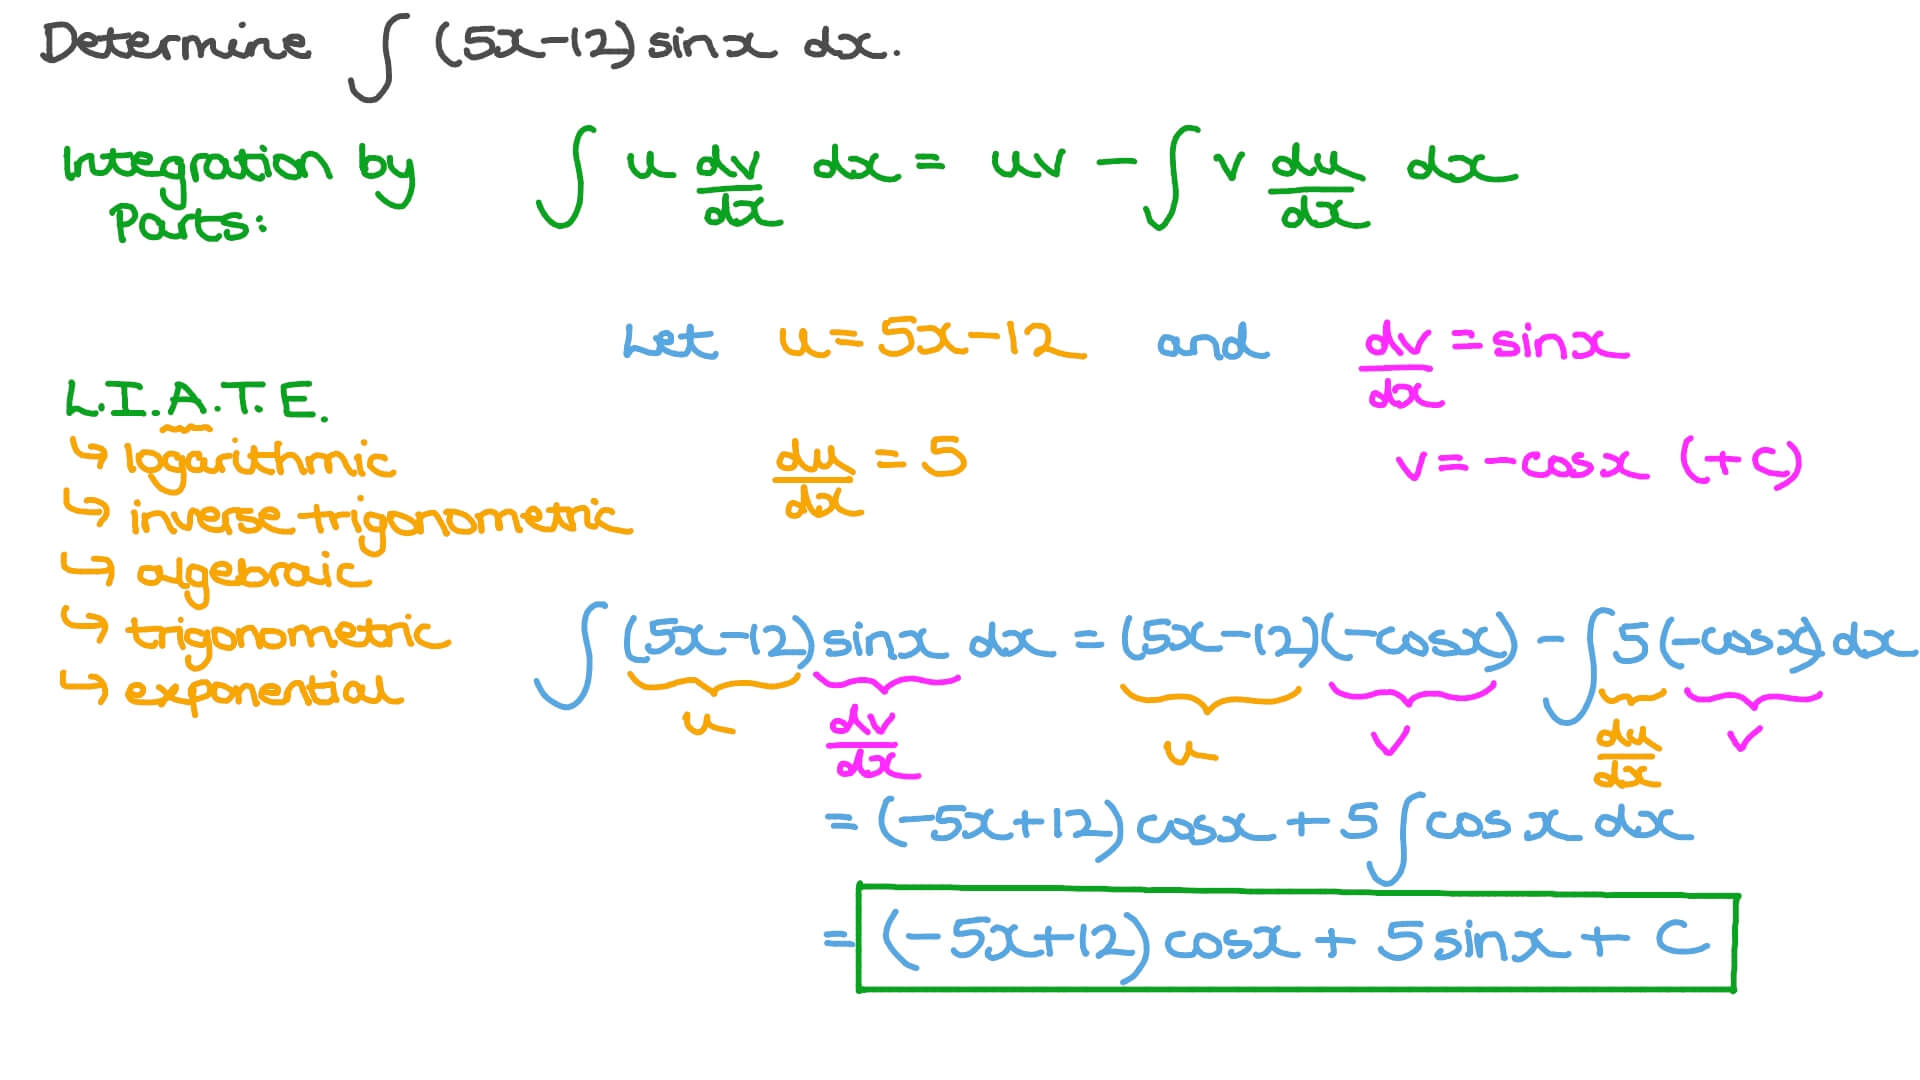 Determine ∫ (5x-12) sinx dx.
Integration by Parts: ∫ u dv/dx dx = uv - ∫ v du/dx dx
Let u = 5x-12 and dv/dx = sinx
L.I.A.T.E.
↳ logarithmic
du/dx = 5 v = -cosx (+C)
↳ inverse trigonometric
↳ algebraic
↳ trigonometric
↳ exponential
∫ (5x-12) sinx dx = (5x-12)(-cosx) - ∫ 5(-cosx) dx
u dv/dx u v du/dx v
= (-5x+12) cosx + 5 ∫ cosx dx
= (-5x+12) cosx + 5 sinx + C